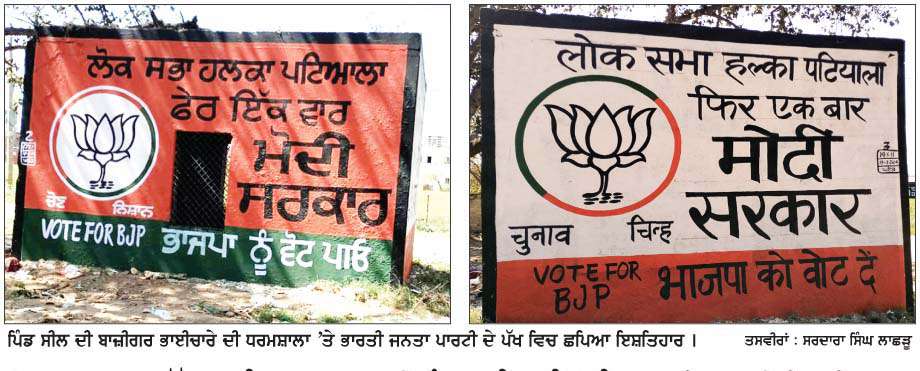 ਲੋਕ ਸਭਾ ਹਲਕਾ ਪਟਿਆਲਾ
ਫੇਰ ਇੱਕ ਵਾਰ
ਮੋਦੀ
ਸਰਕਾਰ
ਚੋਣ ਨਿਸ਼ਾਨ
VOTE FOR BJP ਭਾਜਪਾ ਨੂੰ ਵੋਟ ਪਾਓ
लोक सभा हल्का पटियाला
फिर एक बार
मोदी
सरकार
चुनाव चिन्ह
VOTE FOR
BJP
भाजपा को वोट दें
ਪਿੰਡ ਸੀਲ ਦੀ ਬਾਜ਼ੀਗਰ ਭਾਈਚਾਰੇ ਦੀ ਧਰਮਸ਼ਾਲਾ 'ਤੇ ਭਾਰਤੀ ਜਨਤਾ ਪਾਰਟੀ ਦੇ ਪੱਖ ਵਿਚ ਛਪਿਆ ਇਸ਼ਤਿਹਾਰ । ਤਸਵੀਰਾਂ : ਸਰਦਾਰਾ ਸਿੰਘ ਲਾਛੜੂ